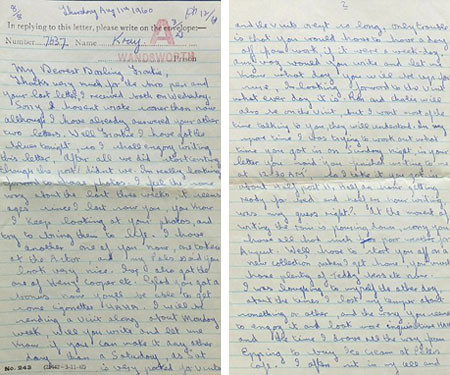 Thursday Aug 11th 1960
In replying to this letter, please write on the envelope:—
Number 7057 Name Kray
A
WANDSWORTH Prison
My Dearest Darling Frankie,
Thanks very much for the two pens and
your last letter I received both on Tuesday.
Sorry I haven't wrote sooner than now
although I have already answered your other
two letters. Well Frankie I have got the
tonight, so I shall enjoy writing
this letter. After all we did start courting
through the post didn't we. I'm really looking
forward to these photos. I feel the same
way about the last three weeks it seems
ages since I last saw you.
I keep looking at your photos, and
try to bring them to life. I have
another one of you now, one taken
at the Actor, and my Pals said you
look very nice. I've also got the
one of Henry Cooper etc. Glad you got a
bonus now you'll be able to get
more cigarettes HAHA. I will be
sending a visit along about Monday
week, will you write and let me
know if you can make it any other
day than a Saturday, as Sat
is very packed for visits
No. 243
2
and the visits aren't so long, only trouble
is that you would have to have a day
off from work if it were a week-day
any way would you write and let me
know what day you will be up for
sure, I'm looking forward to the visit
what ever day it is for and
also be on the visit, but I want most of the
time talking to you they will understand I'm very
sure. I was trying to work out what
time you got in on Sunday night, in your
letter you said you started writing to me
at 12.30 AM so I take it you got in
about Half past 11, Half an hour getting
ready for bed and Half an hour writing
was my guess right? At the moment of
writing the rain is pouring down, worry you
have all had much poor weather for
August. We'll have to start you off on a
new collection when I get home, as you must
have plenty of Teddy Bears etc now.
I was laughing to myself the other day
about the times I lost my temper about
something or other, and the way you seemed
to enjoy it and look more
and the time I drove all the way from
Epping to buy Ice cream at Peles
Cafe. I often sit in my cell and